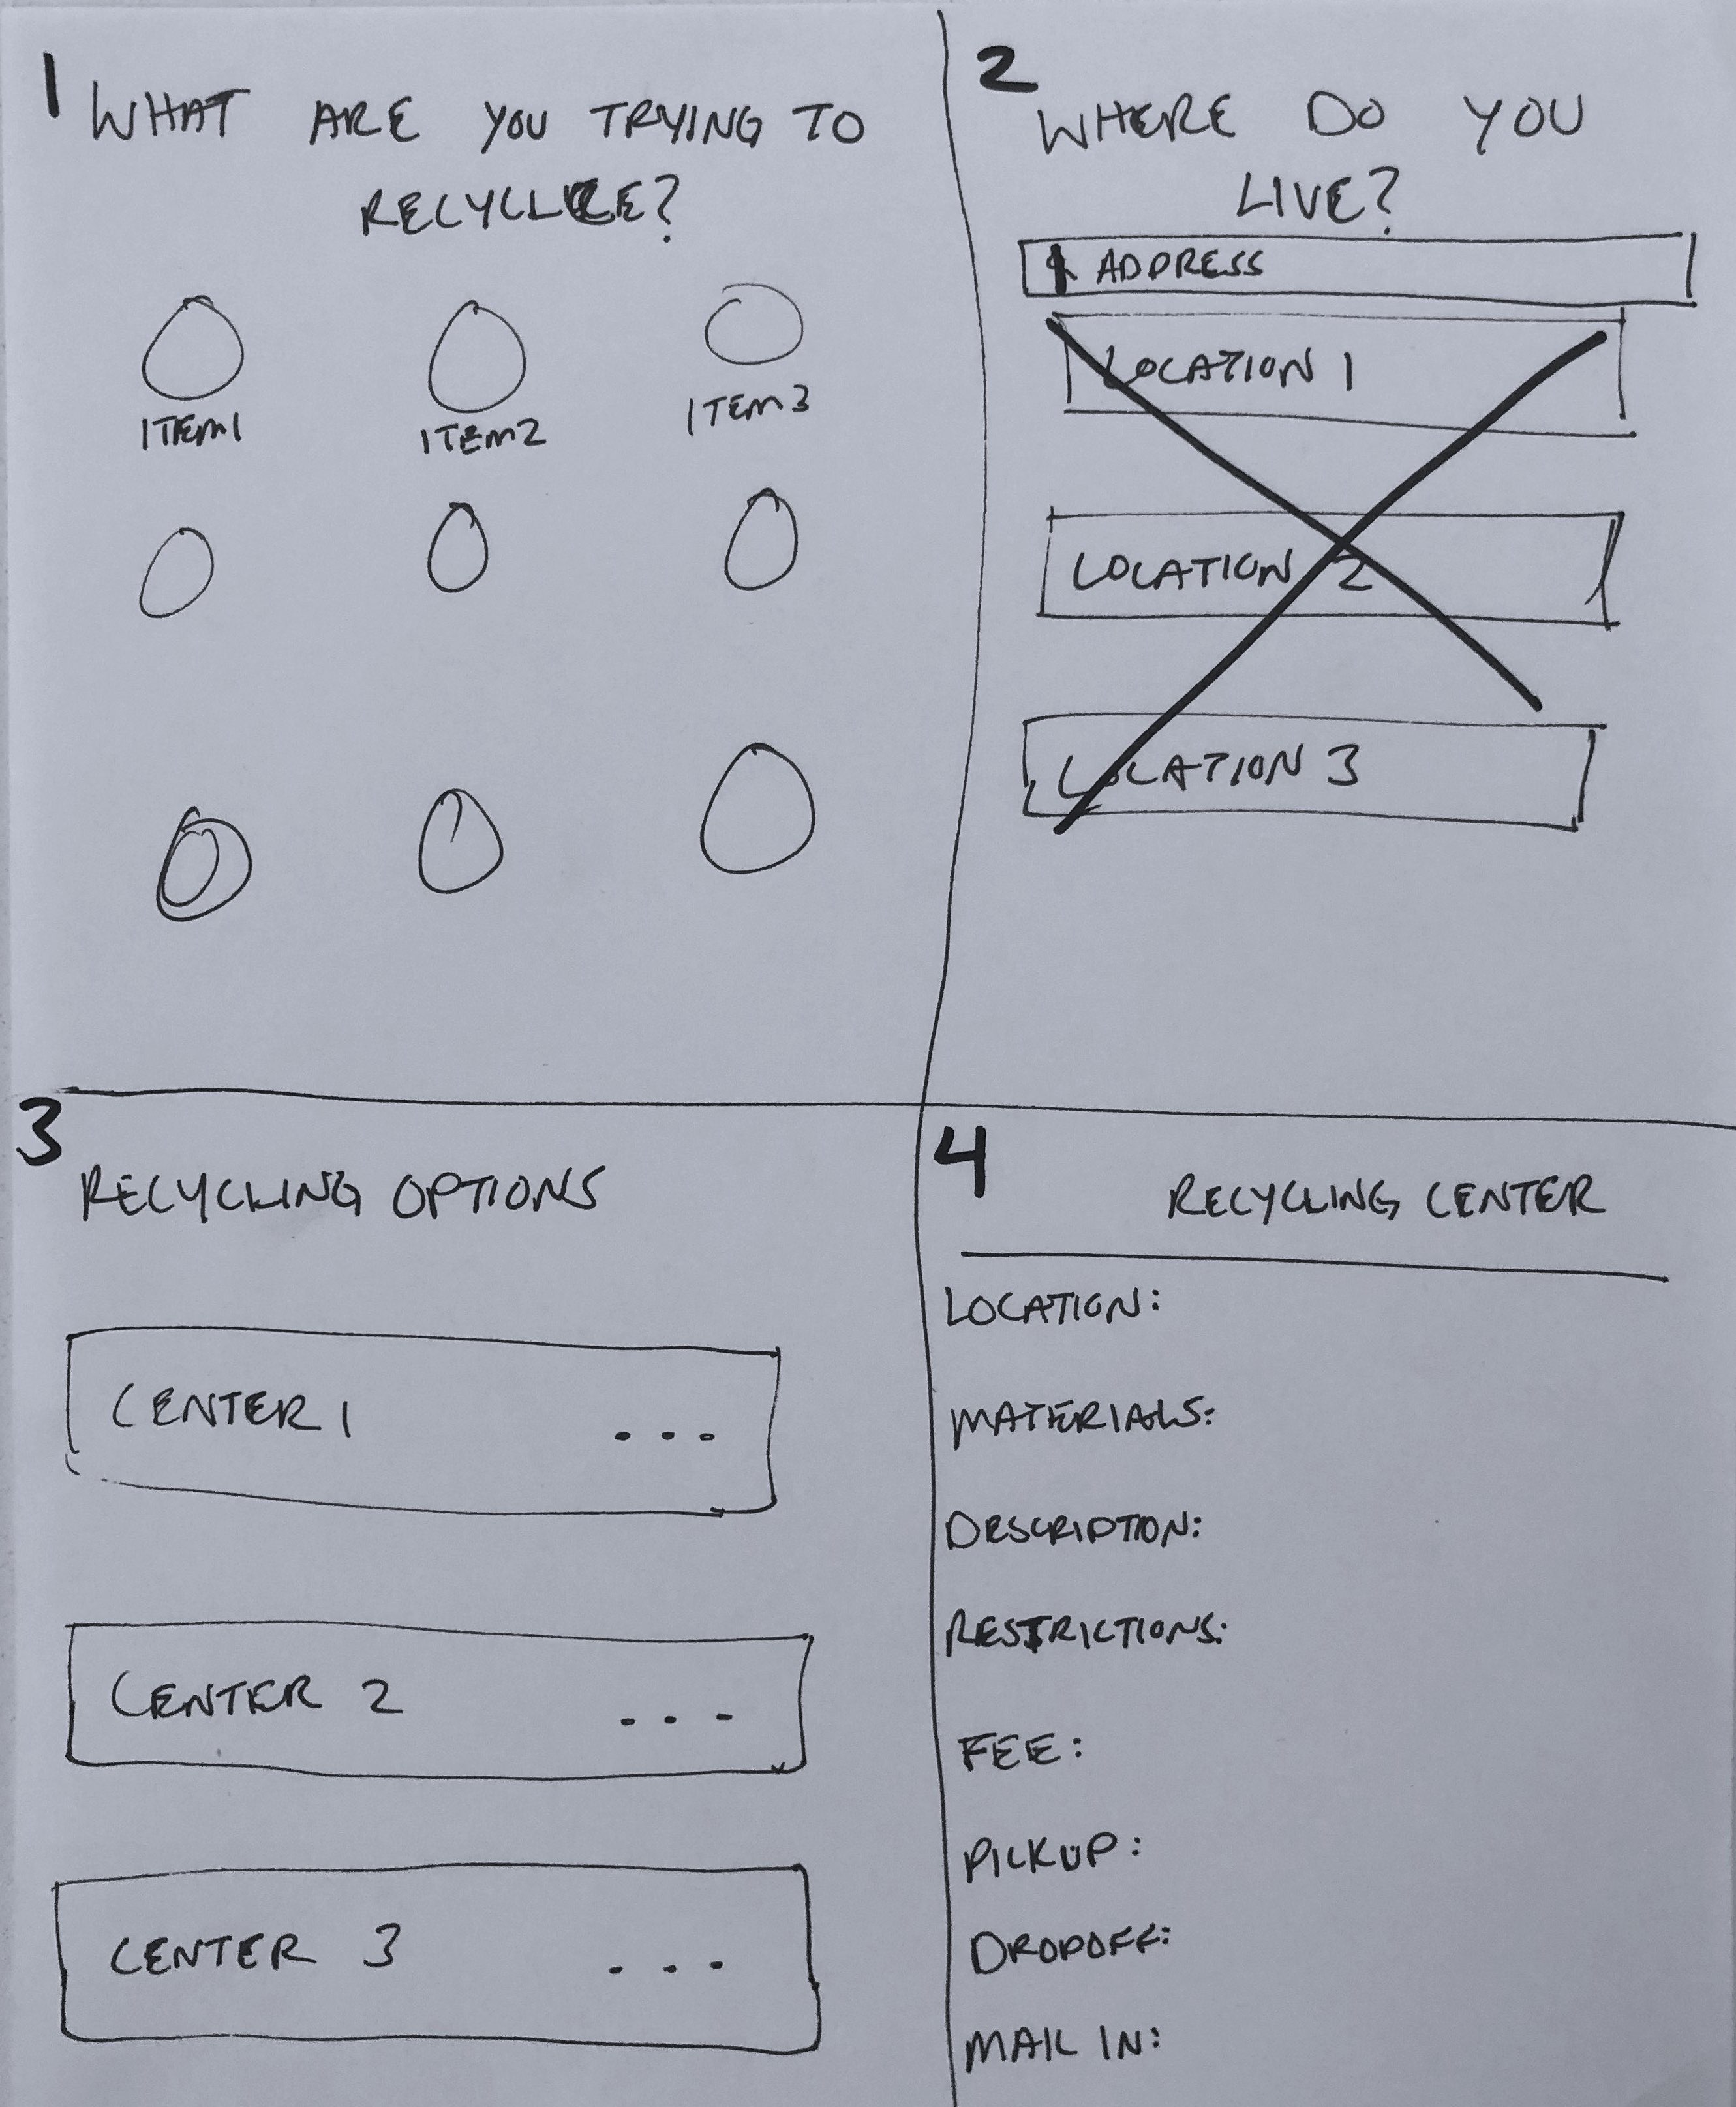 1
WHAT ARE YOU TRYING TO
RECYCLE?
ITEM1
ITEM2
ITEM3
2
WHERE DO YOU
LIVE?
ADDRESS
LOCATION 1
LOCATION 2
LOCATION 3
3
RECYCLING OPTIONS
CENTER 1 ...
CENTER 2 ...
CENTER 3 ...
4
RECYCLING CENTER
LOCATION:
MATERIALS:
DESCRIPTION:
RESTRICTIONS:
FEE:
PICKUP:
DROPOFF:
MAIL IN: